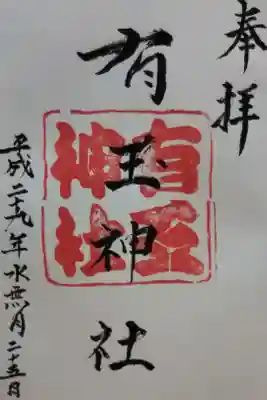 奉拝
有玉神社
有玉
神社
平成二十九年水無月二十五日